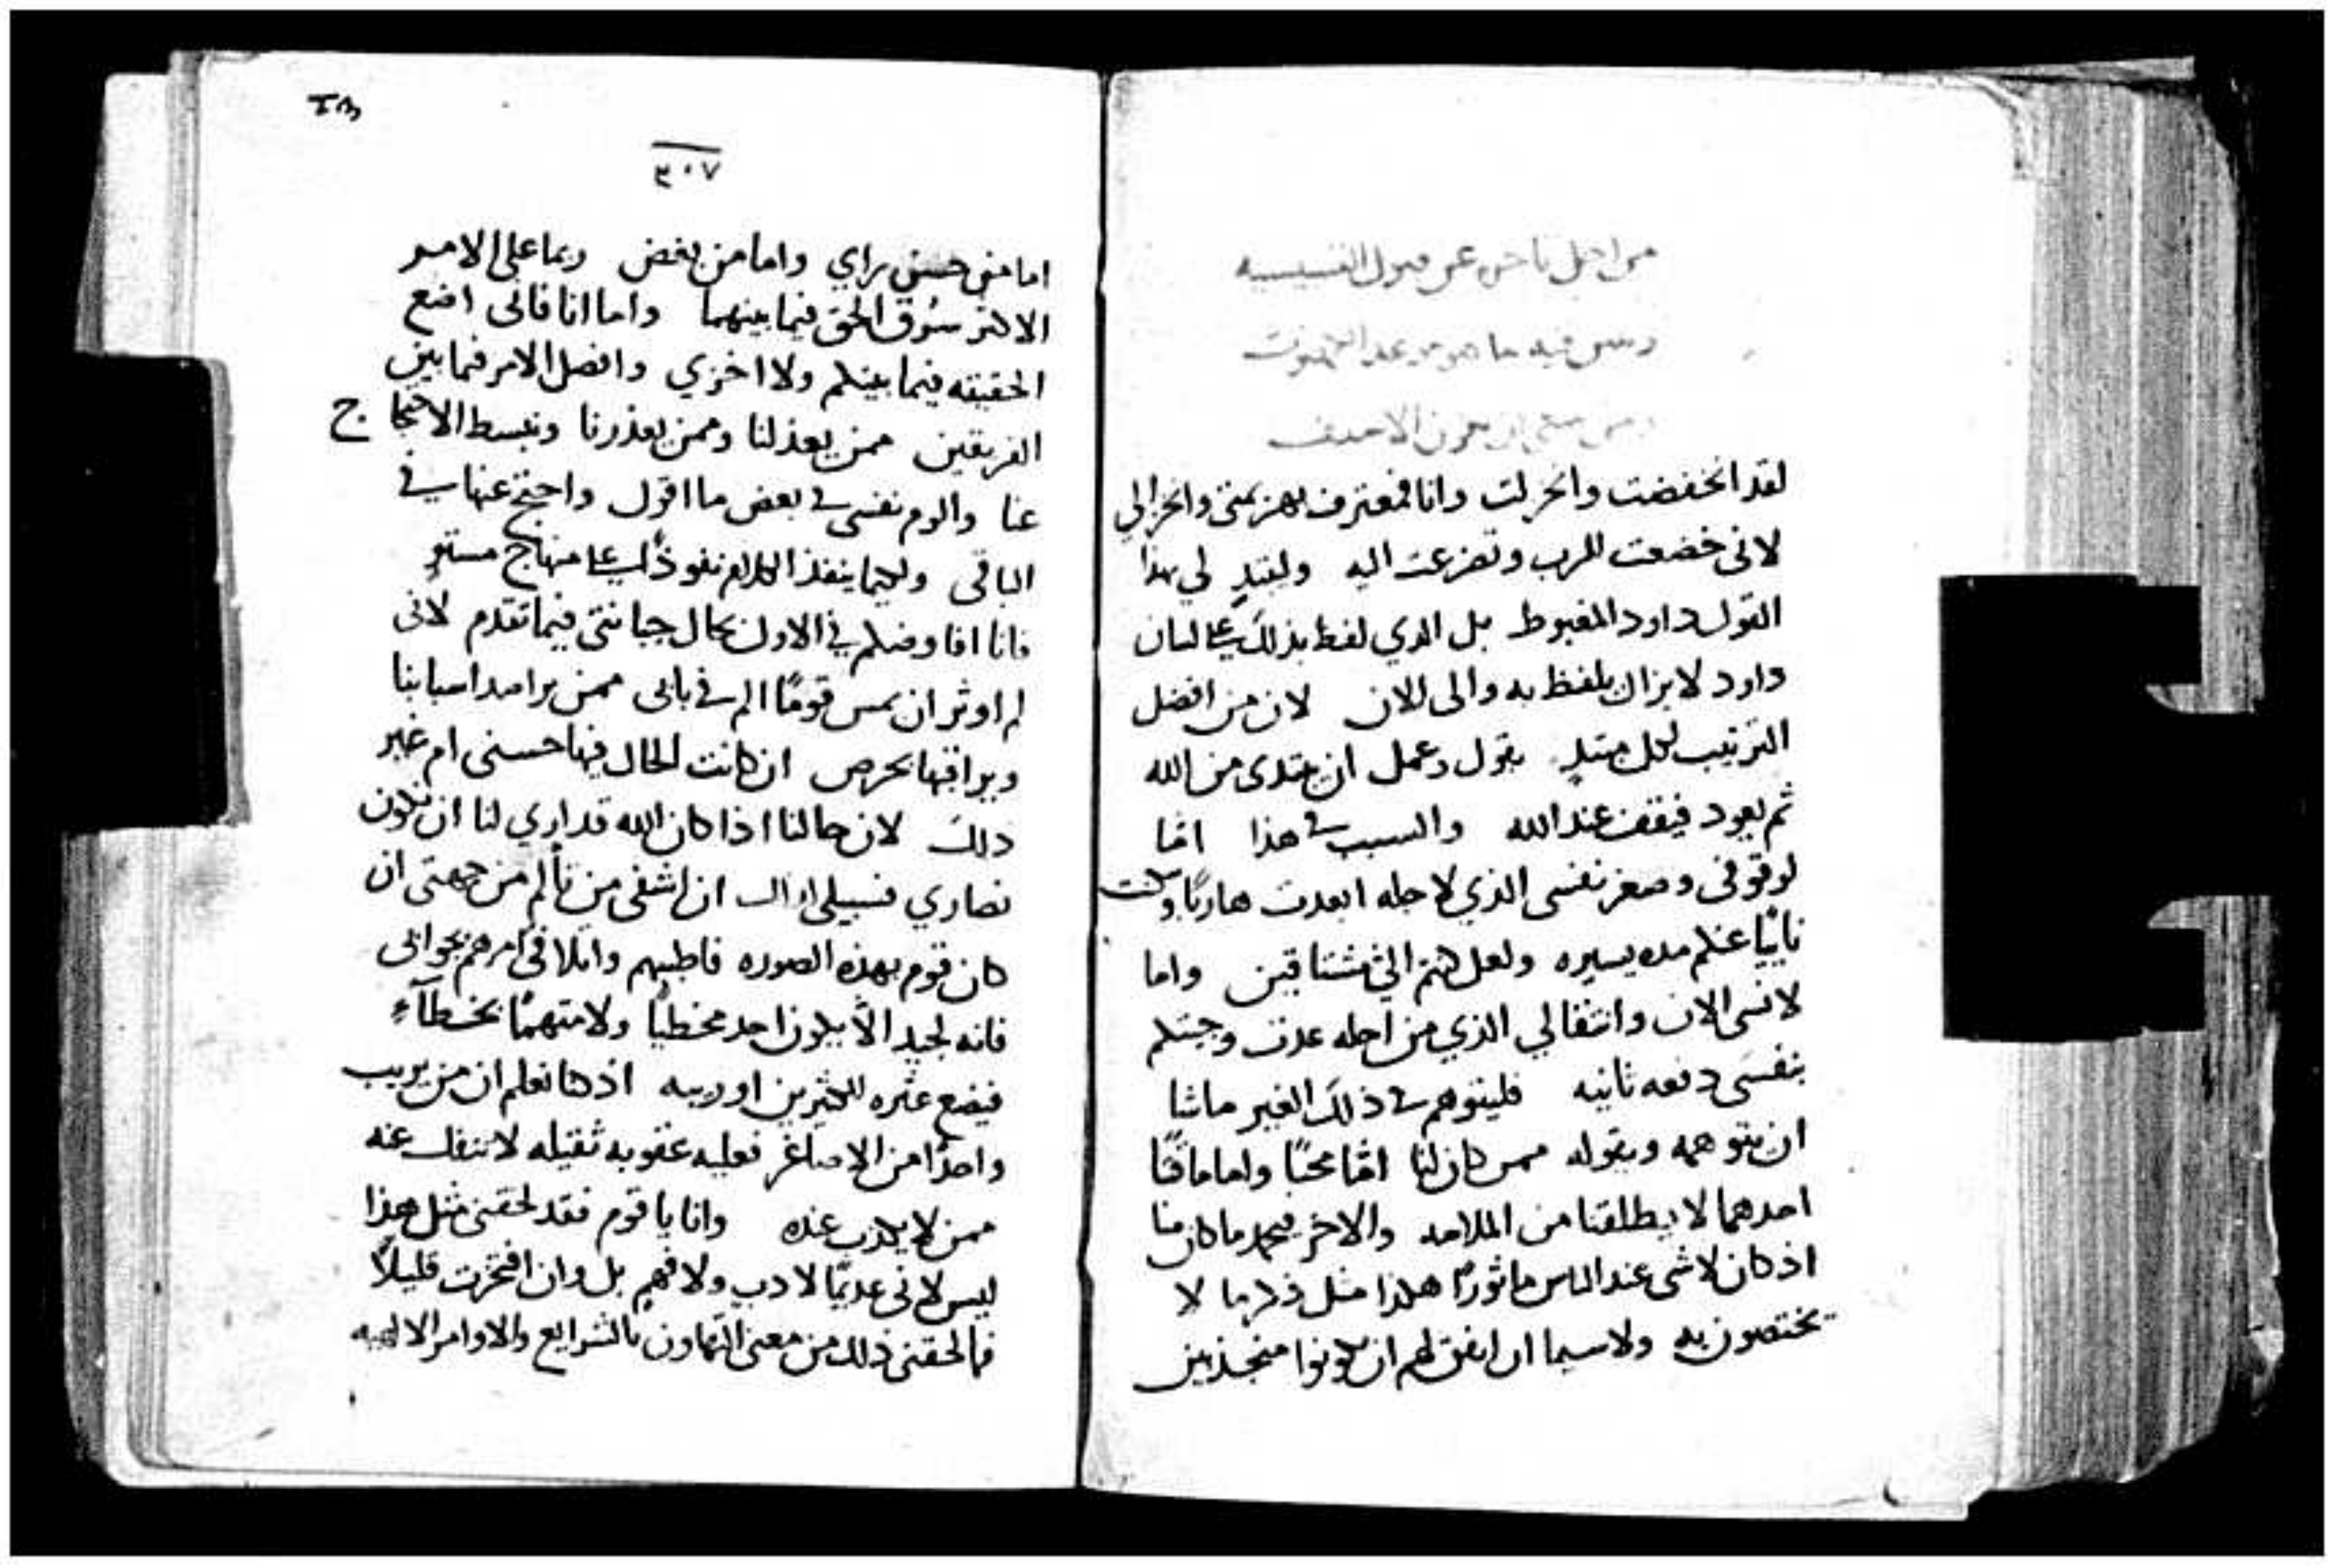 من اجل تاخره عن قبول القسيسيه
لقد انخفضت وانخزلت وانا فمعترف بهزيمتي وانخزالي
لاني خضعت للرب وتضرعت اليه وليبتدِ لي بهذا
القول داود المغبوط بل الدي لفظ بذلك على لسان
داود لا يزال يلفظ به والى الان لان من افضل
الترتيب لكل مبتدِ بقول وعمل ان يبتدى من الله
ثم يعود فيقف عند الله والسبب في هذا امّا
لوقوفى وصغر نفسى الذي لاجله ابعدت هاربًا وكنت
نائيًا عنكم مده يسيره ولعل كنتم اليّ مشتاقين واما
لانسى الان وانتقالي الذي من اجله عدت وجيتكم
بنفسي دفعه ثانيه فليتوهم في ذلك الغير ماشا
ان يتوهمه ويقوله ممن كان لنا امّا محبًا واما ماقتًا
احدهما لا يطلقنا من الملامه والاخر فيحمد ما كان منا
اذ كان لا شى عند الناس ماثورًا هكذا مثل ذكر ما لا
يختصون به ولاسيما ان اتفق لهم ان يكونوا منجذبين
٣٠٧
اما من حسن راي واما من بغض وبما على الامر
الاكثر سُرق الحق فيما بينهما واما انا فانى اضع
الحقيقه فيما بينكم ولا اخزي وافصل الامر فيما بين
الفريقين ممن يعذلنا وممن يعذرنا ونبسط الاحتجاج
عنا والوم نفسى في بعض ما اقول واحتج عنها في
الباقى ولكيما ينفذ الكلام نفوذًا على منهاج مستوٍ
فانا افاوضكم في الاول بحال جبانتى فيما تقدم لانى
لم اوثر ان يمس قومًا الم في بابى ممن يراصد اسبابنا
ويراقبها بحرص ان كانت الحال فيها حسنى ام غير
دلك لان حالنا اذا كان الله قد اري لنا ان نكون
نصاري فسبيلى ان اشفى من تألم من جهتى ان
كان قوم بهذه الصوره فاطبهم واتلافى امرهم بجوابى
فانه لجيد الاّ يكون احد مخطيًا ولا متهمًا بخطآءٍ
فيضع عثره للكثيرين او ريبه اذ كنا نعلم ان من يريب
واحدًا من الاصاغر فعليه عقوبه ثقيله لا تنفك عنه
ممن لا يكذب عنده وانا يا قوم فقد لحقنى مثل هذا
ليس لانى عديمًا لادب ولا فهمٍ بل وان افتخرت قليلاً
فما لحقنى ذلك من معنى التهاون بالشرايع والاوامر الالهيه